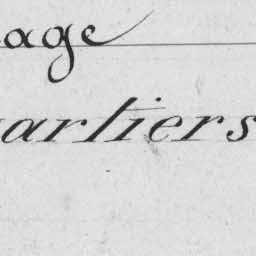 age
artiers